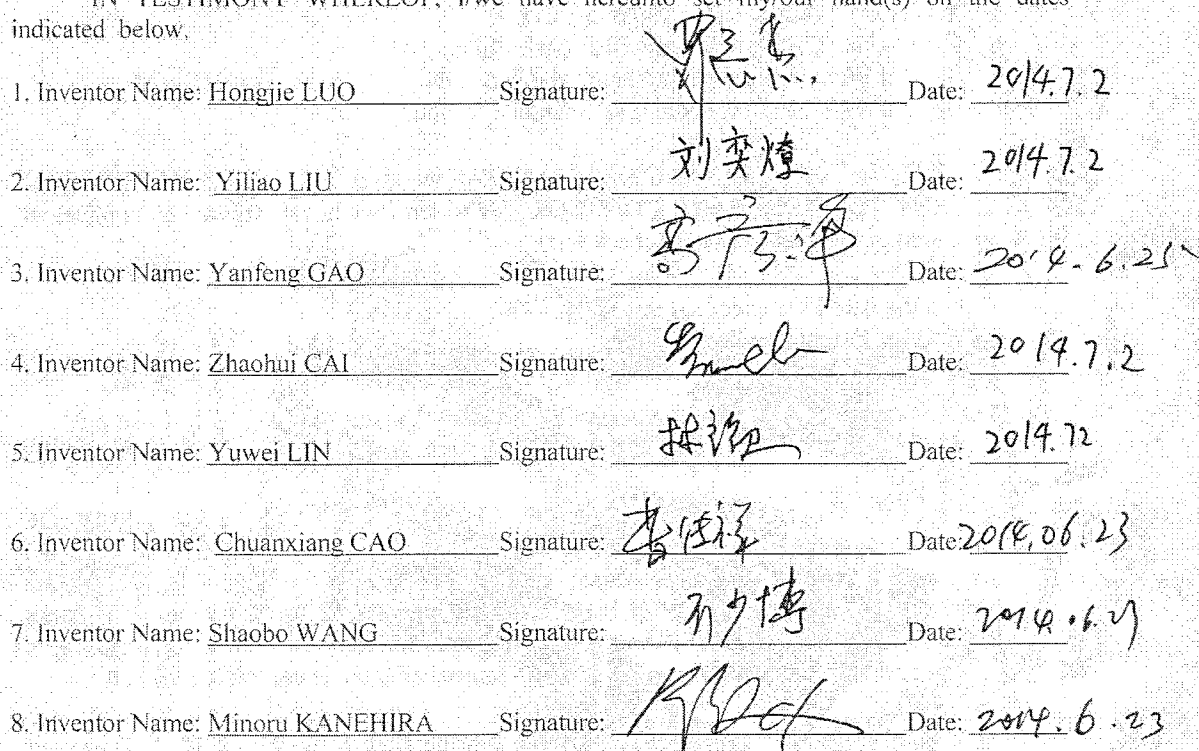 IN TESTIMONY WHEREOF, I/we have hereunto set my/our hand(s) on the dates
indicated below.
1. Inventor Name: Hongjie LUO Signature: Date: 2014.7.2
2. Inventor Name: Yiliao LIU Signature: 刘奕燎 Date: 2014.7.2
3. Inventor Name: Yanfeng GAO Signature: 高彦峰 Date: 2014.6.25
4. Inventor Name: Zhaohui CAI Signature: Date: 2014.7.2
5. Inventor Name: Yuwei LIN Signature: Date: 2014.72
6. Inventor Name: Chuanxiang CAO Signature: 曹传祥 Date: 2014.06.23
7. Inventor Name: Shaobo WANG Signature: 少博 Date:
8. Inventor Name: Minoru KANEHIRA Signature: Date: 2014.6.23